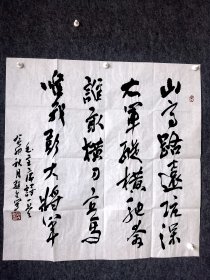 山高路远坑深
大軍縱橫馳奔
誰敢横刀立馬
唯我彭大将軍
毛主席詩一首